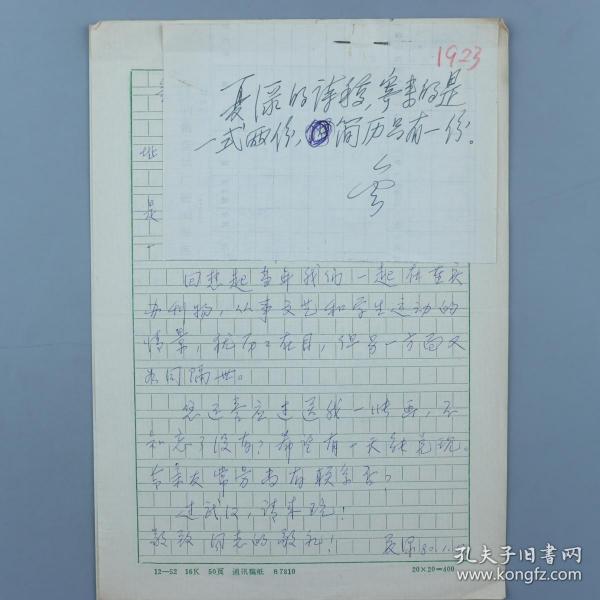 1923
夏渌的诗稿,寄来的是
一式两份,简历只有一份。
址
是
回想起当年我们一起在重庆
办刊物,从事文艺和学生运动的
情景,犹历历在目,但另一方面又
如同隔世。
您还答应过送我一张画,不
知忘了没有?希望有一天能兑现。
过武汉,请来玩!
敬致同志的敬礼! 夏渌
12—52 16K 50页 通讯稿纸 87810
20×20=400
孔夫子旧书网
www.kongfz.com